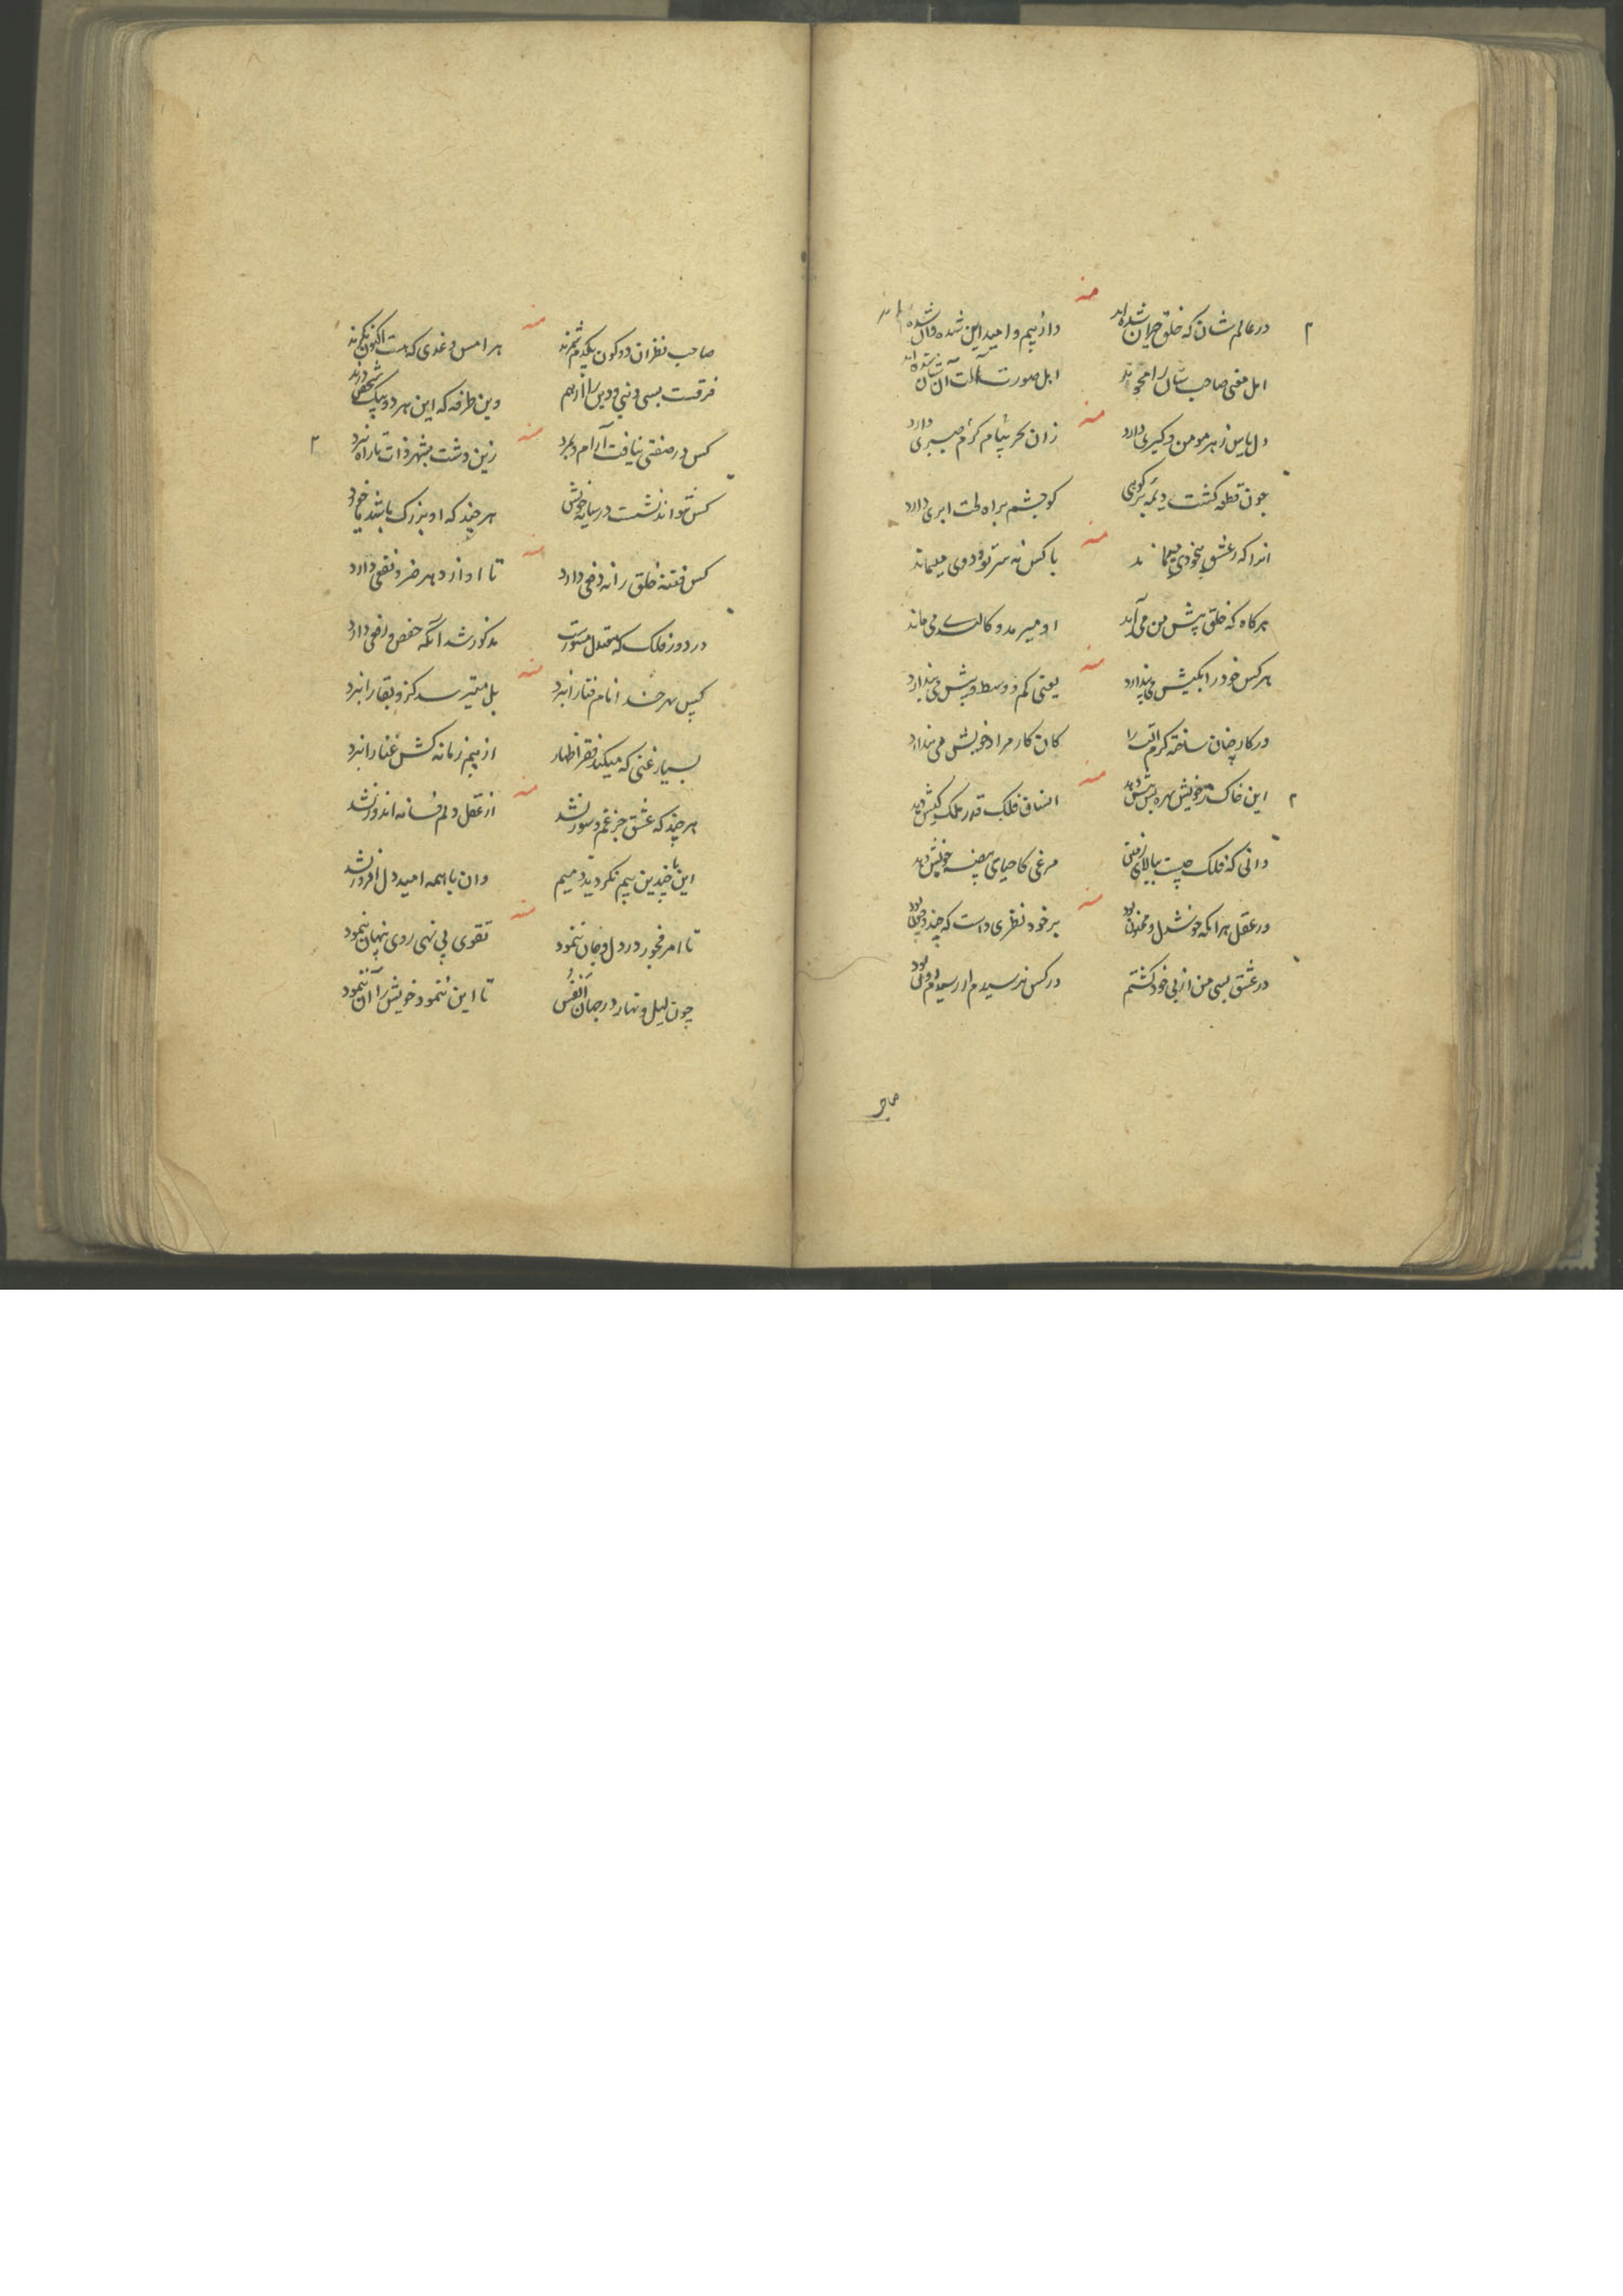 منه
در عالم شان که خلق حیران شده‌اند دارُ بیم و امید این شده و آن شده‌اند
اهل معنی صاحب شان را محوند اهل صورت شان شده‌اند
منه
دل پاس ز هر مومن و کبری دارد زان بحر پیام کرم صبری دارد
چون قطعه کشت کو چشم براه لت ابری دارد
منه
انرا که ز عشق بیخودی میماند با کس نه سر تو و دوی میماند
هرکاه که خلق پیش من می‌آید او میرمد و کالبد می ماند
منه
هرکس خود را بکیش می پندارد یعنی کم و وسط و بیش می پندارد
در کار چنان ساخته کرم را کان کار مراد خویش می پندارد
منه
این خاک خویش بهره بیش دهد انصاف فلک قدر ملک کیش دهد
دانی که فلک چیست ببالای زمین مرغی کاحیای بیضه خویش دهد
منه
در عقل هر آنکه خوشدل و محزون بود بر خود نظری داست که چند و چون بود
در عشق بسی من از پی خود کشتم در کس نرسیدم ار رسیدم او بود
صاحب
منه
صاحب نظران دو کون یکدم شمرند هر امس و غدی که هست اکنون نکرند
فرقست بسی دنیی و دین را از هم وین طرفه که این هر دو بیک شخص درند
منه
کس در صفتی نیافت آرام و نبرد زین دشت بشهر ذات تا راه نبرد
کس نتواند نشست در سایه خویش هر چند که او بزرک باشد یا خورد
منه
کس فتنهٔ خلق را نه دفعی دارد تا او از دهر ضر و نفعی دارد
در دور فلک که معتدل مستورست مذکور شد آنکه خفض و رفعی دارد
منه
انام فنا را نبرد بل میرسد کز و بقا را نبرد
بسیار غنی که میکند فقر اظهار از بیم زمانه کش غنا را نبرد
منه
هر چند که عشق جز غم و سوز نشد از عقل دلم فسانه اندوز نشد
این با چندین بیم نکردید دمیم وان با همه امید دل افروز نشد
منه
تا امر فجور در دل و جان ننمود تقوی پی نهی روی پنهان ننمود
چون لیل و نهار در جهان انفس تا این ننمود خویش را آن ننمود